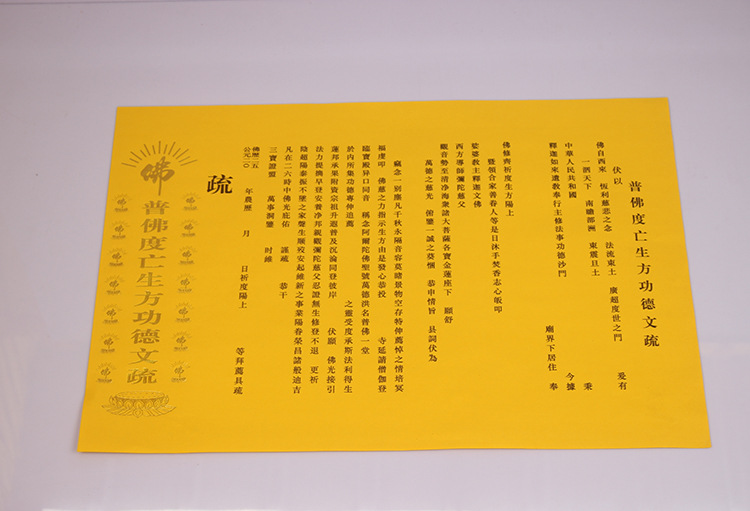 普佛度亡生方功德文疏
伏以
佛自西來 恆利慈悲之念 法流東土 廣超度世之門 爰有
一泗天下 南瞻部洲 東震旦土 秉
中華人民共和國 今據
釋迦如來遺教奉行主修法事功德沙門
廟界下居住 奉
佛修齊祈度生方陽上
暨領合家善眷人等是日休手焚香志心皈叩
娑婆教主釋迦文佛
西方導師彌陀慈父
觀音勢至清净海衆諸大菩薩各寶金蓮座下 願舒
萬德之慈光 俯鑒一誠之葵悃 恭申情旨 具詞伏為
竊念一别塵凡千秋永隔音容莫睹景物空存特伸薦悼之情培冥
福虔叩 佛慈之力指示生方由是發心恭投 寺延請僧伽登
臨寶殿异口同音 稱念阿爾陀佛聖號萬德洪名普佛一堂
於内所集功德專伸追薦 之靈受度承斯法利得生
蓮邦承果附資宗祖升遐普及沉淪同登彼岸 伏願 佛光接引
法力提携早登安養净邦親觀彌陀慈父忍證無生修登不退 更祈
陰超陽泰振不墜之家聲生順殁安起維新之事業陽眷榮昌諸般迪吉
凡在二六時中佛光庇佑 謹疏 恭干
三寶證盟 萬事洞鑒 时維
佛歷二五
公元二〇 年農歷 月 日祈度陽上 等拜薦具疏
疏
佛
普佛度亡生方功德文疏